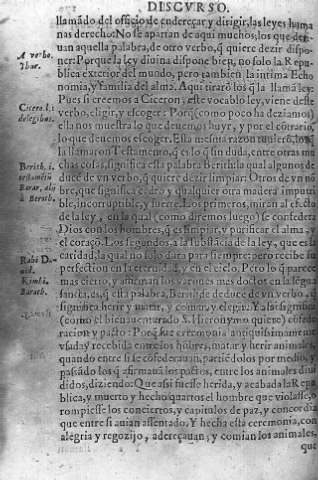 DISCVRSO.
llamado del officio de endereçar y dirigir, las leyes huma
nas derecho: No se apartan de aqui muchos, los que deri
uan aquella palabra, de otro verbo, q̃ quiere dezir dispo
ner: Porque la ley diuina dispone bien, no solo la Repu
blica exterior del mundo, pero tambien la intima Echo
nomia, y familia del alma. Aqui tirarõ los q̃ la llamã ley:
Pues si creemos a Ciceron, este vocablo ley, viene deste
verbo, eligir, y escoger: Porq̃ (como poco ha deziamos)
ella nos muestra lo que deuemos huyr, y por el cõtrario,
lo que deuemos escoger. Ella mesma razon tuuierõ, los q̃
la llamaron Testamento, q̃ es lo q̃ sin duda, entre otras mu
chas cosas, significa esta palabra Berith: la qual algunos de
duce de vn verbo, q̃ quiere dezir limpiar: Otros de vn nõ
bre, que significa cedro y qualquier otra madera imputri
ble, incorruptible, y fuerte. Los primeros, miran al efecto
de la ley, en la qual (como diremos luego) se confedera
Dios con los hombres, q̃ es limpiar, y purificar el alma, y
el coraçõ. Los segundos, a la substãcia de la ley, que es la
caridad, la qual no solo dura para siempre: pero recibe su
perfection en la eternidad, y en el cielo. Pero lo q̃ parece
mas cierto, y afirman los varones mas doctos en la lẽgua
sancta, es, q̃ esta palabra, Berith se deduce de vn verbo, q̃
significa herir y matar, y comer, y elegir: Y assi significa
(como el bienauenturado S. Hieronymo quiere) cõfede
racion y pacto: Porq̃ fue ceremonia antiquissimamente
vsada y recebida entre los hõbres, matar y herir animales,
quando entre si se cõfederauan, partiẽdolos por medio, y
passãdo los q̃ afirmauã los pactos, entre los animales diui
didos, diziendo: Que assi fuesse herida, y acabada la Repu
blica, y muerto y hecho quartos el hombre que violasse, o
rompiesse los conciertos, y capitulos de paz, y concordia
que entre si auian assentado. Y hecha esta ceremonia, con
alegria y regozijo, adereçauan, y comian los animales,
que
A verbo.
Cicero.l.1.
delegibus.
Berith, i.
Barar, diu
à Berath.
Rabi D.
Kimhi.
Barath.